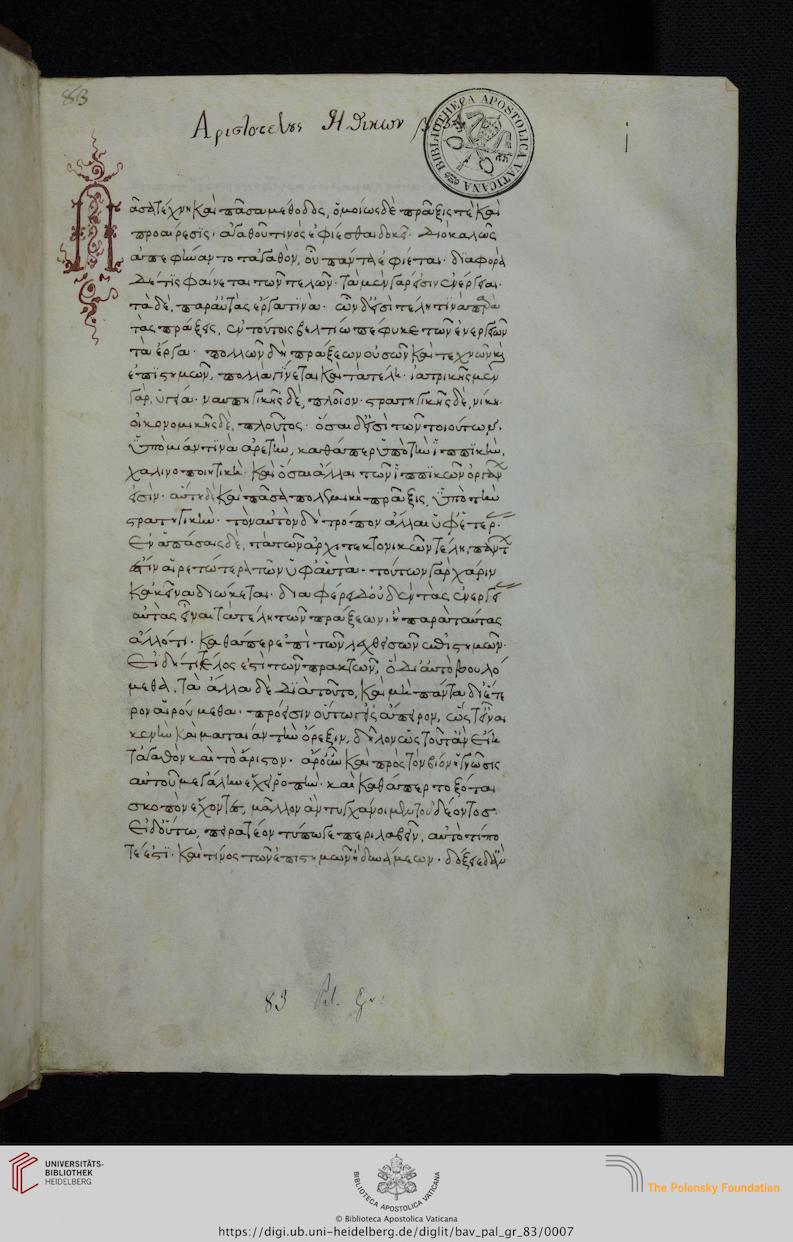 83
Αριστοτελους Ηθικων
BIBLIOTHECA APOSTOLICA VATICANA
i
Πᾶσα τέχνη καὶ πᾶσα μέθοδος, ὁμοίως δὲ πρᾶξις τὲ καὶ
προαίρεσις, ἀγαθοῦ τινὸς ἐφίεσθαι δοκεῖ. Διὸ καλῶς
ἀπεφήναντο τἀγαθὸν, οὗ πάντα ἐφίεται. διαφορὰ
δέ τις φαίνεται τῶν τελῶν. τὰ μὲν γάρ εἰσιν ἐνέργειαι.
τὰ δὲ, παρ' αὐτὰς ἔργα τινὰ. ὧν δ' εἰσὶ τέλη τινὰ παρὰ
τὰς πράξεις, ἐν τούτοις βελτίω πέφυκε τῶν ἐνεργειῶν
τὰ ἔργα. πολλῶν δὲ πράξεων οὐσῶν καὶ τεχνῶν καὶ
ἐπιστημῶν, πολλὰ γίνεται καὶ τὰ τέλη. ἰατρικῆς μὲν
γὰρ, ὑγεία. ναυπηγικῆς δὲ, πλοῖον. στρατηγικῆς δὲ, νίκη.
οἰκονομικῆς δὲ, πλοῦτος. ὅσαι δ' εἰσὶ τῶν τοιούτων
ὑπὸ μίαν τινὰ ἀρετὴν, καθάπερ ὑπὸ τὴν ἱππικὴν,
χαλινοποιητικὴ. καὶ ὅσαι ἄλλαι τῶν ἱππικῶν ὀργάνων
εἰσίν. αὕτη δὲ καὶ πᾶσα πολεμικὴ πρᾶξις, ὑπὸ τὴν
στρατηγικὴν. τὸν αὐτὸν δὴ τρόπον ἄλλαι ὑφ' ἑτέρας.
Ἐν ἁπάσαις δὲ, τὰ τῶν ἀρχιτεκτονικῶν τέλη, πάντων
ἐστὶν αἱρετώτερα τῶν ὑφ' αὑτὰ. τούτων γὰρ χάριν
κἀκεῖνα διώκεται. διαφέρει δ' οὐδὲν τὰς ἐνεργείας
αὐτὰς εἶναι τὰ τέλη τῶν πράξεων, ἢ παρὰ ταύτας
ἄλλό τι. καθάπερ ἐπὶ τῶν λεχθεισῶν ἐπιστημῶν.
Εἰ δή τι τέλος ἐστὶ τῶν πρακτῶν, ὃ δι' αὐτὸ βουλό
μεθα, τὰ ἄλλα δὲ διὰ τοῦτο, καὶ μὴ πάντα δι' ἕτε
ρον αἱρούμεθα. πρόεισιν οὕτω γ' εἰς ἄπειρον, ὥστ' εἶναι
κενὴν καὶ ματαίαν τὴν ὄρεξιν, δῆλον ὡς τοῦτ' ἂν εἴη
τἀγαθὸν καὶ τὸ ἄριστον. ἆρ' οὖν καὶ πρὸς τὸν βίον ἡ γνῶσις
αὐτοῦ μεγάλην ἔχει ῥοπὴν. καὶ καθάπερ τοξόται
σκοπὸν ἔχοντες, μᾶλλον ἂν τυγχάνοιμεν τοῦ δέοντος.
Εἰ δ' οὕτω, πειρατέον τύπω γε περιλαβεῖν, αὐτὸ τί πο
τέ ἐστι. καὶ τίνος τῶν ἐπιστημῶν ἢ δυνάμεων. δόξειε δ' ἂν
83 Pal. Gr:
UNIVERSITÄTS-
BIBLIOTHEK
HEIDELBERG
BIBLIOTECA APOSTOLICA VATICANA
The Polonsky Foundation
© Biblioteca Apostolica Vaticana
https://digi.ub.uni-heidelberg.de/diglit/bav_pal_gr_83/0007